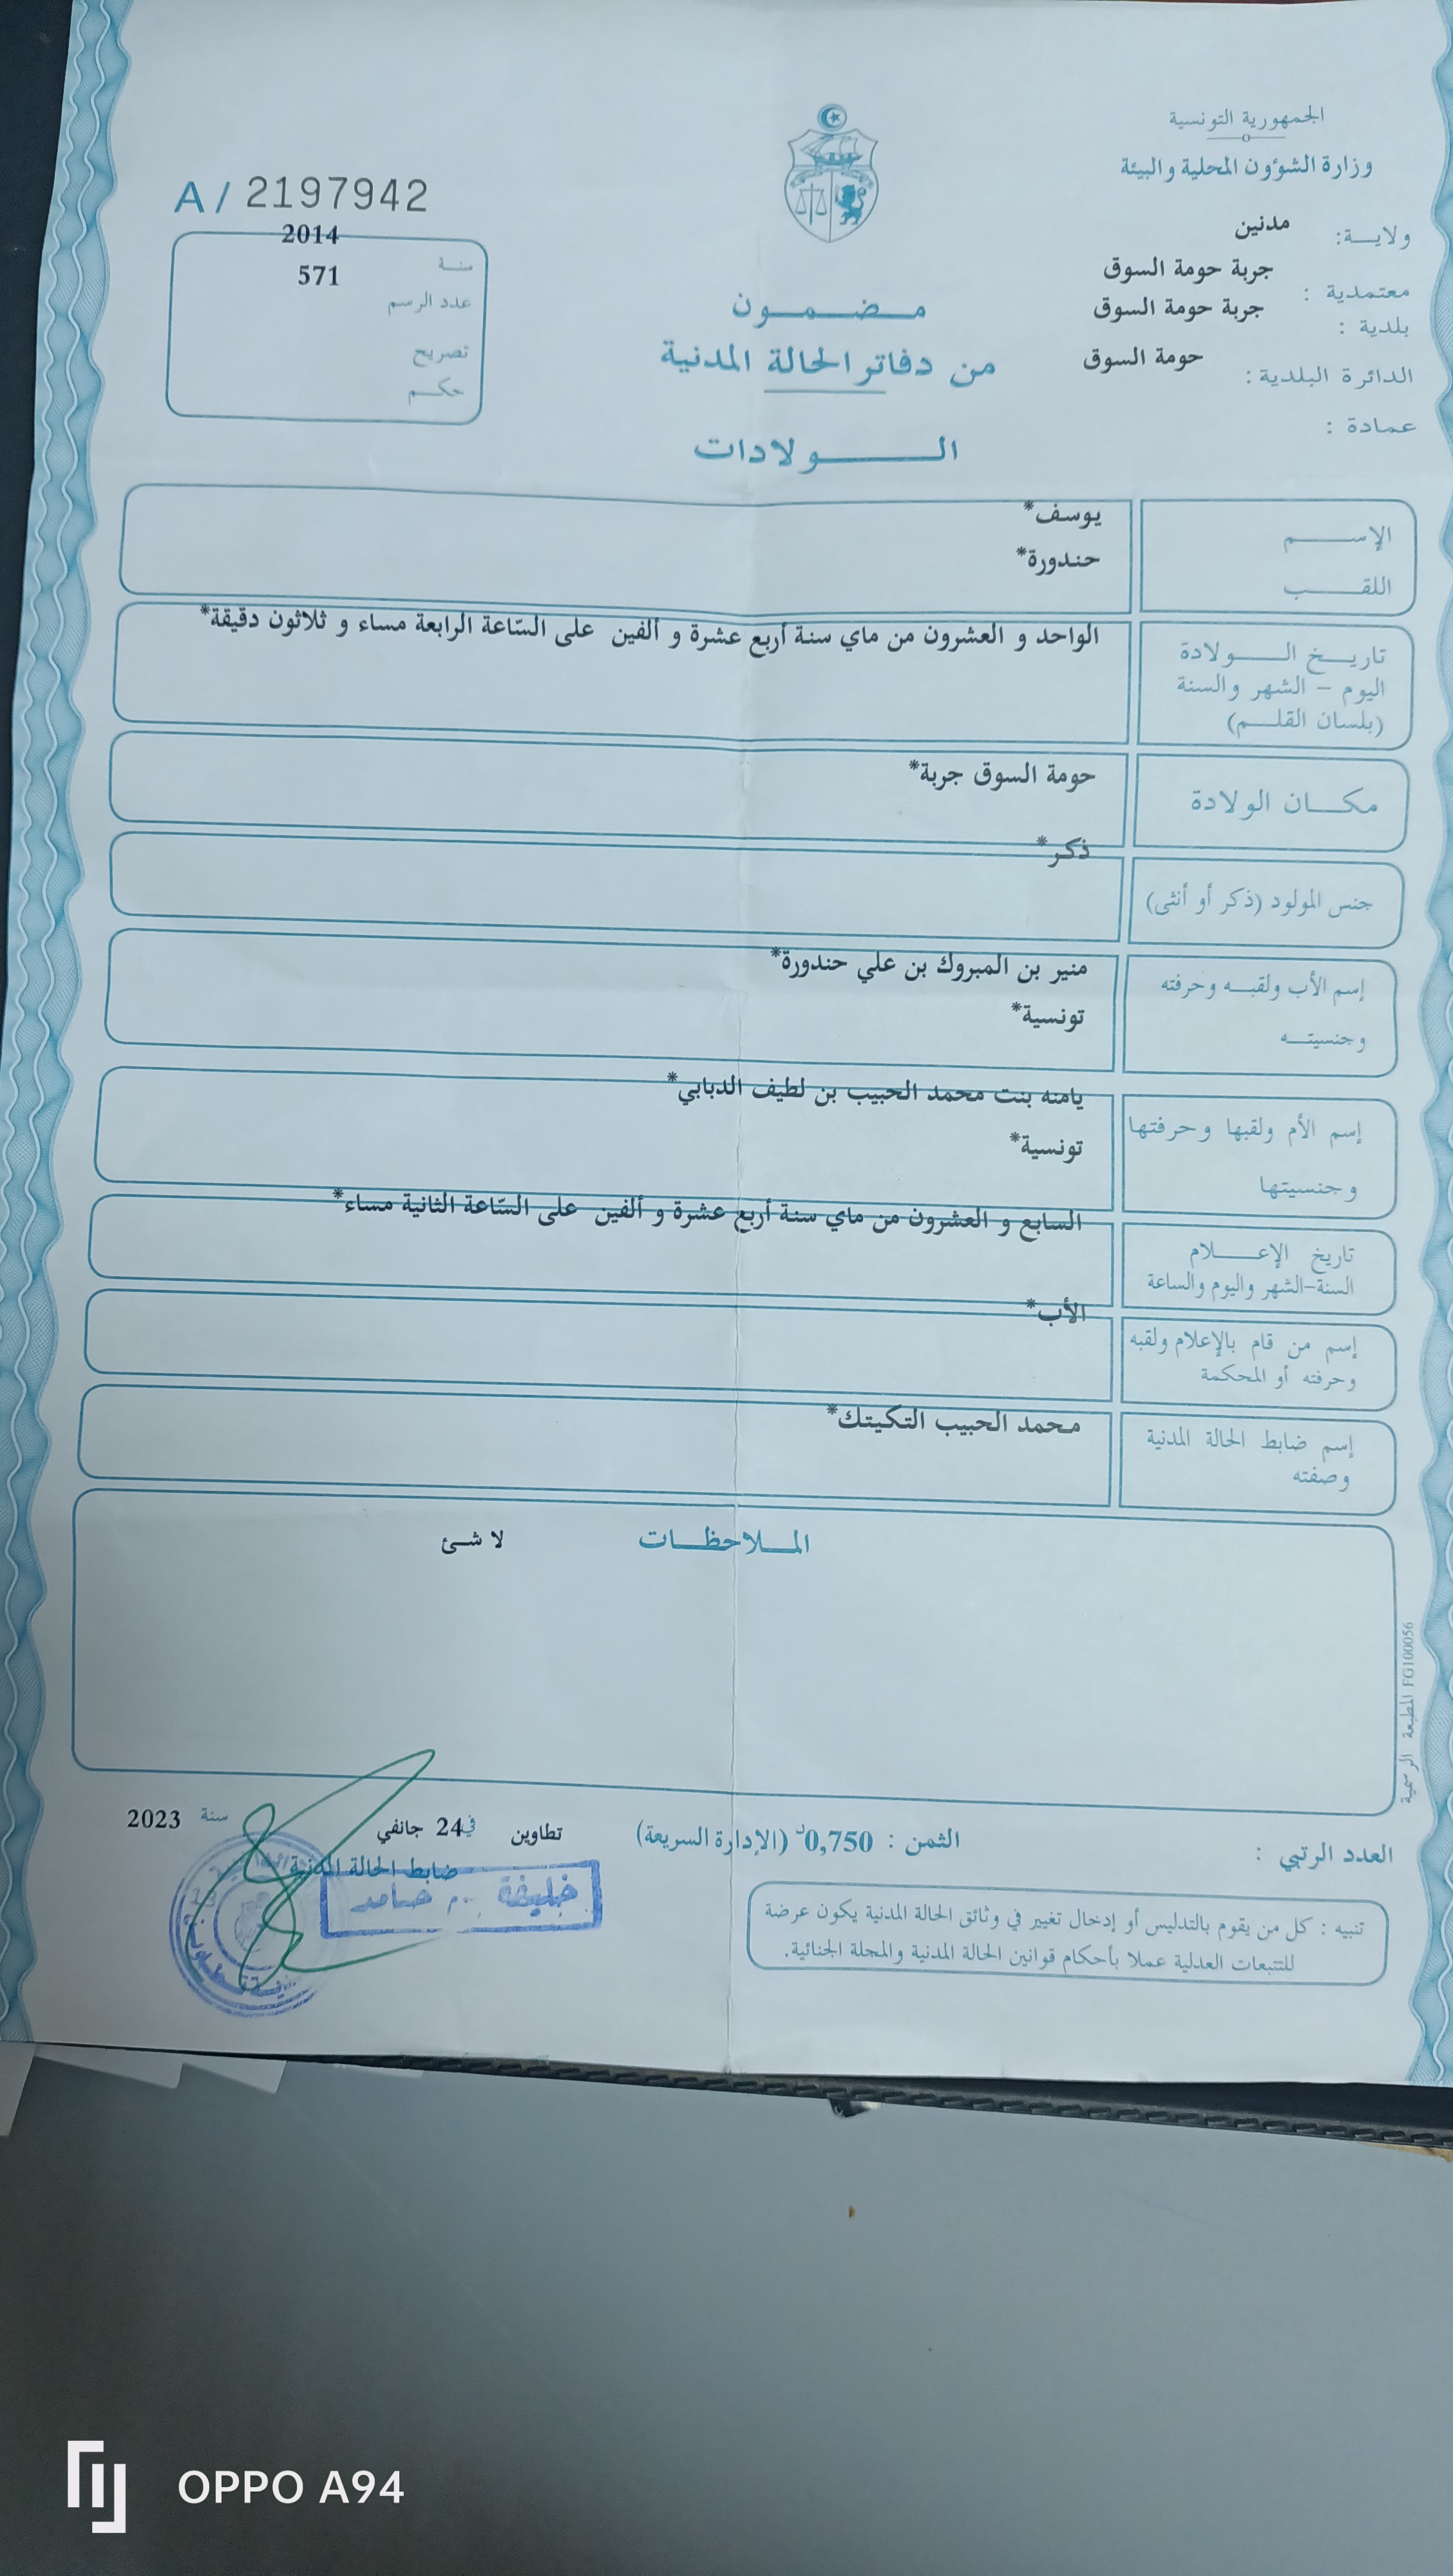 الجمهورية التونسية
وزارة الشؤون المحلية والبيئة
ولايــة: مدنين
معتمدية : جربة حومة السوق
بلدية : جربة حومة السوق
الدائرة البلدية : حومة السوق
عمادة :
A / 2197942
سنة 2014
عدد الرسم 571
تصريح
حكم
مضمون
من دفاتر الحالة المدنية
الولادات
الإسم يوسف*
اللقب حندورة*
تاريخ الولادة
اليوم – الشهر والسنة
(بلسان القلم)
الواحد و العشرون من ماي سنة أربع عشرة و ألفين على السّاعة الرابعة مساء و ثلاثون دقيقة*
مكان الولادة حومة السوق جربة*
جنس المولود (ذكر أو أنثى) ذكر*
إسم الأب ولقبه وحرفته منير بن المبروك بن علي حندورة*
وجنسيته تونسية*
إسم الأم ولقبها وحرفتها يامنه بنت محمد الحبيب بن لطيف الدبابي*
وجنسيتها تونسية*
تاريخ الإعلام
السنة-الشهر واليوم والساعة
السابع و العشرون من ماي سنة أربع عشرة و ألفين على السّاعة الثانية مساء*
إسم من قام بالإعلام ولقبه
وحرفته أو المحكمة
الأب*
إسم ضابط الحالة المدنية
وصفته
محمد الحبيب التكيتك*
الملاحظات لا شئ
المطبعة الرسمية FG100056
العدد الرتبي :
الثمن : 0,750د (الإدارة السريعة)
تطاوين في 24 جانفي سنة 2023
ضابط الحالة المدنية
خليفة حامد
تنبيه : كل من يقوم بالتدليس أو إدخال تغيير في وثائق الحالة المدنية يكون عرضة
للتتبعات العدلية عملا بأحكام قوانين الحالة المدنية والمجلة الجنائية.
OPPO A94